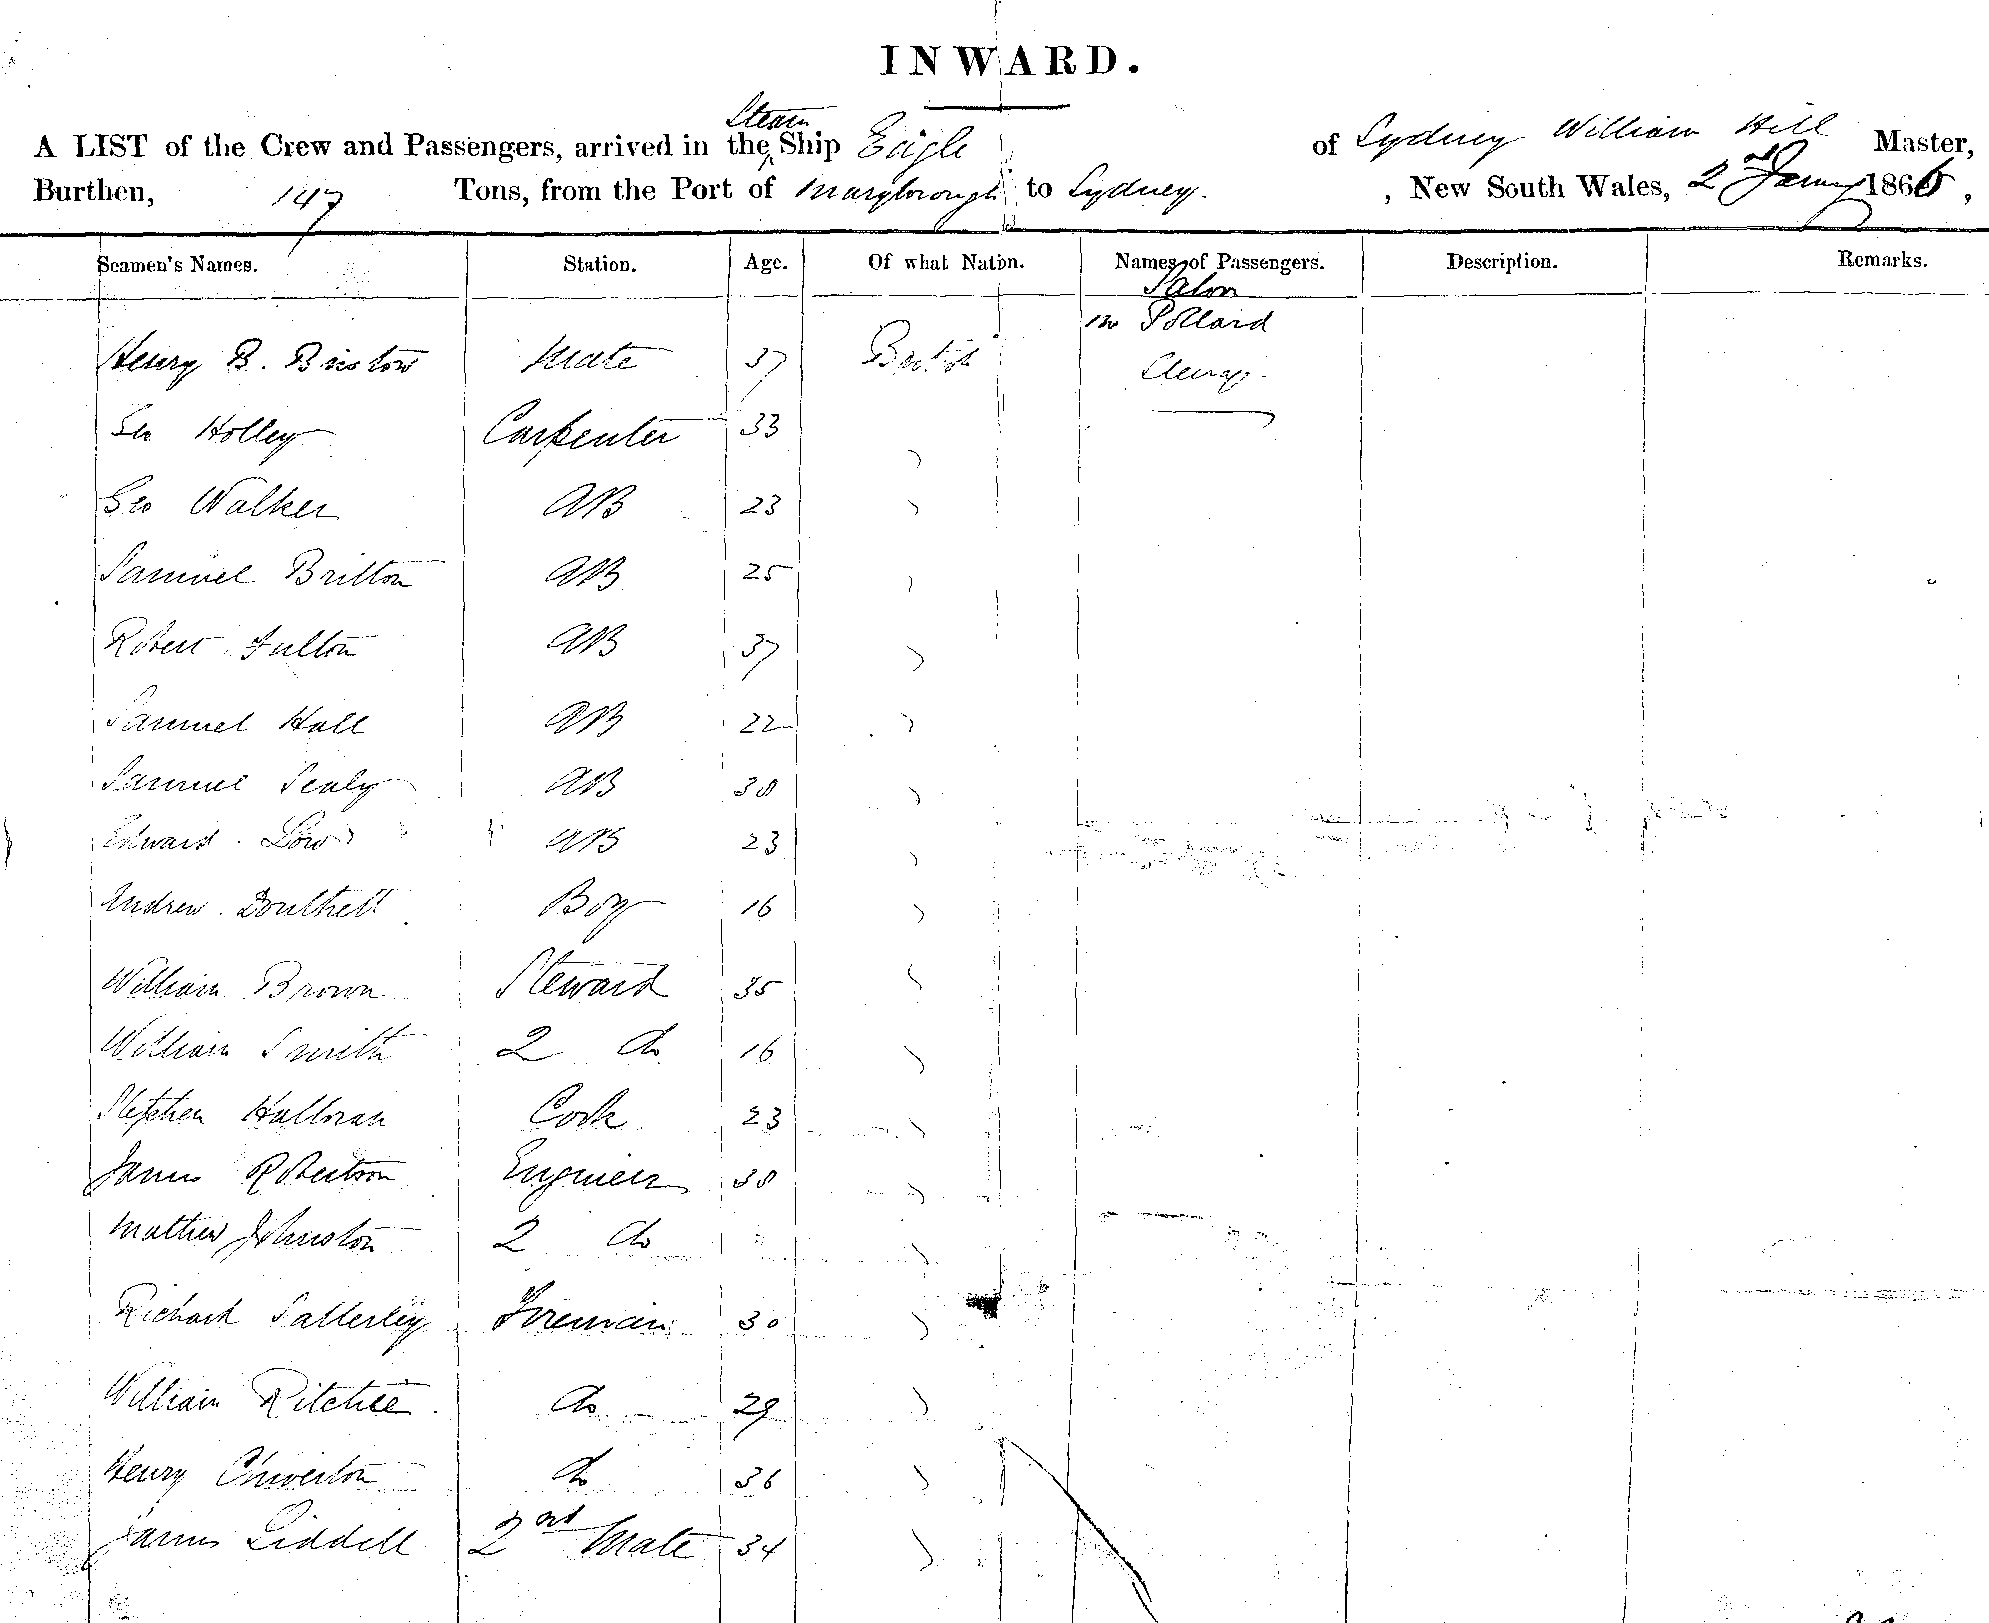 INWARD.
A LIST of the Crew and Passengers, arrived in the Steam Ship Eagle of Sydney William Hill Master,
Burthen, 147 Tons, from the Port of Maryborough to Sydney. , New South Wales, 2nd Jany 1866,
Seamen's Names. Station. Age. Of what Nation. Names of Passengers. Description. Remarks.
Salon
Mr Pollard
Henry B. Bristow Mate 37 British
Geo Holley Carpenter 33
Geo Walker AB 23
Samuel Britton AB 25
Robert Fulton AB 37
Samuel Hall AB 22
Samuel Sealy AB 38
Edward Low AB 23
Andrew Douthett Boy 16
William Brown Steward 35
William Smith 2 do 16
Stephen Halloran Cook 23
James Robertson Engineer 38
Mathew Johnston 2 do
Richard Satterley Fireman 30
William Ritchie do 29
Henry Chiverton do 36
James Liddell 2nd Mate 34